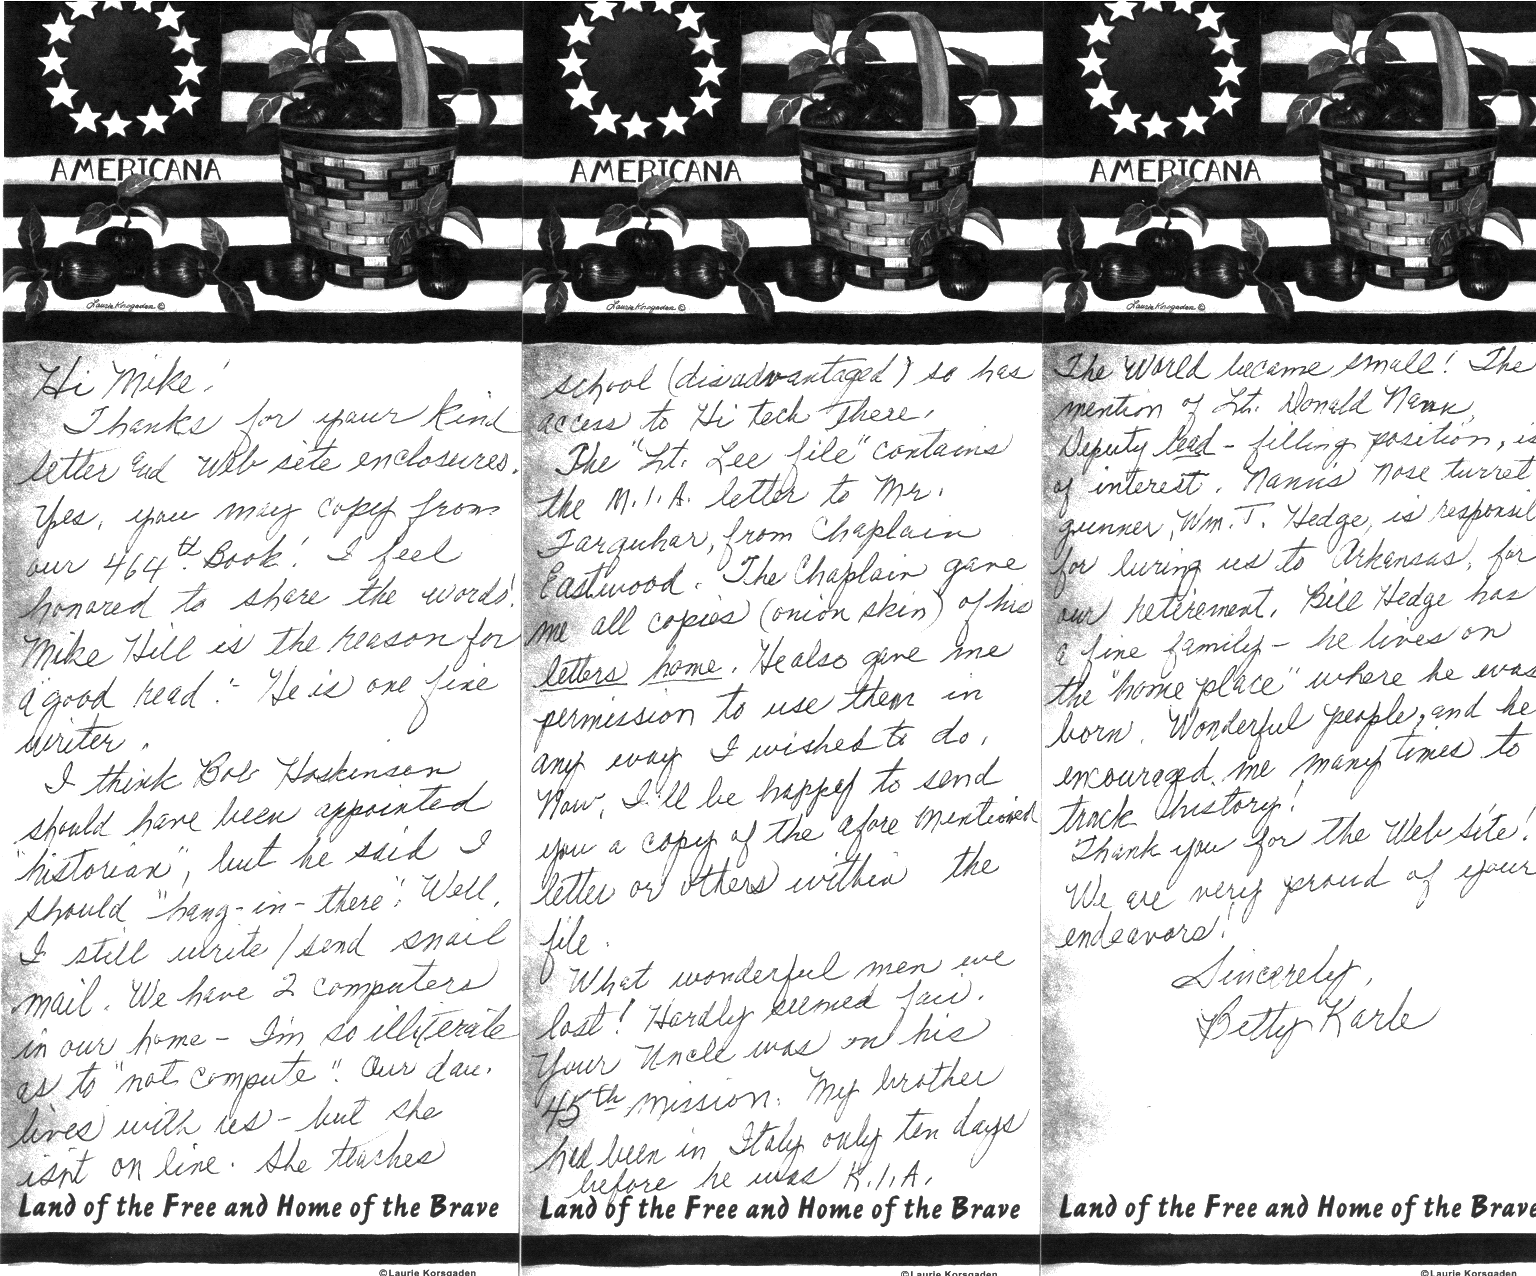 AMERICANA
Laurie Korsgaden ©
Hi Mike!
Thanks for your kind
letter and Web site enclosures.
Yes, you may copy from
our 464th Book! I feel
honored to share the words!
Mike Hill is the reason for
a "good read" - He is one fine
writer.
I think Bob Hoskinson
should have been appointed
"historian", but he said I
should "hang-in-there"! Well,
I still write / send snail
mail. We have 2 computers
in our home - I'm so illiterate
as to "not compute". Our dau.
lives with us - but she
isn't on line. She teaches
Land of the Free and Home of the Brave
©Laurie Korsgaden
AMERICANA
Laurie Korsgaden ©
school (disadvantaged) so has
access to Hi tech there.
The "Lt. Lee file" contains
the M.I.A. letter to Mr.
Farquhar, from Chaplain
Eastwood. The Chaplain gave
me all copies (onion skin) of his
letters home. He also gave me
permission to use them in
any way I wished to do.
Now, I'll be happy to send
you a copy of the afore mentioned
letter or others within the
file.
What wonderful men we
lost! Hardly seemed fair.
Your Uncle was on his
45th mission. My brother
had been in Italy only ten days
before he was K.I.A.
Land of the Free and Home of the Brave
©Laurie Korsgaden
AMERICANA
Laurie Korsgaden ©
The World became small! The
mention of Lt. Donald Nann,
Deputy lead - filling position, is
of interest. Nann's nose turret
gunner, Wm. T. Hedge, is responsil
for luring us to Arkansas, for
our retirement. Bill Hedge has
a fine family - he lives on
the "home place" where he was
born. Wonderful people, and he
encouraged me many times to
track history!
Thank you for the Web Site!
We are very proud of your
endeavors!
Sincerely,
Betty Karle
Land of the Free and Home of the Brave
©Laurie Korsgaden